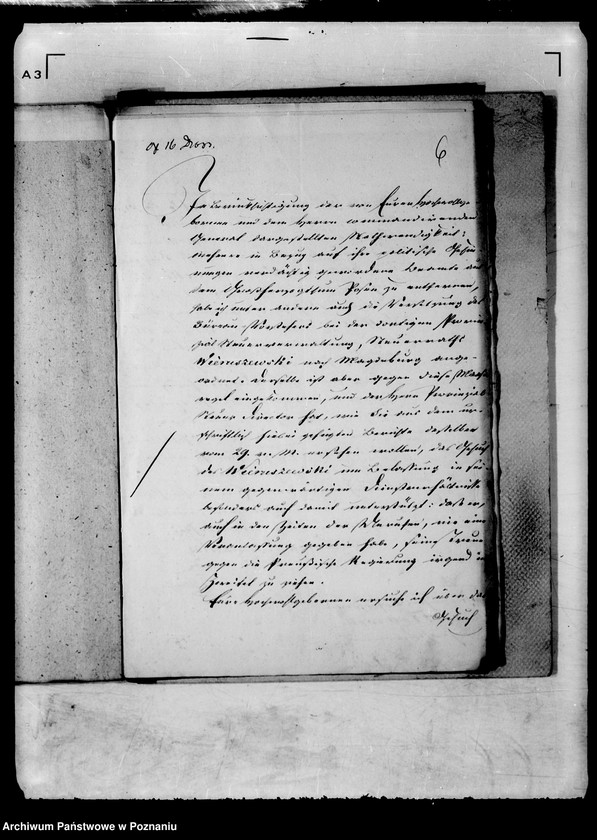 A3
6
In Berücksichtigung der von Euren Hochwohlge-
bornen und dem Herrn commandirenden
General dargestellten Nothwendigkeit:
mehrere in Bezug auf ihre politische Gesin-
nungen verdächtig gewordene Beamte aus
dem Großherzogthum Posen zu entfernen,
habe ich unter anderen auch die Versetzung des
Büreau Vorstehers bei der dortigen Provin-
zial Steuerverwaltung, Steuerraths
Weiruszewski nach Magdeburg ange-
ordnet. Derselbe ist aber gegen diese Maas-
regel eingekommen, und der Herr Provinzial-
Steuer Director hat, wie Sie aus dem ur-
schriftlich hiebei gefügten Berichte desselben
vom 29. v. M. ersehen wollen, das Gesuch
des Weiruszewski um Belassung in sei-
nem gegenwärtigen Dienstverhältnisse
besonders auch damit unterstützt: daß er,
auch in den Zeiten der Unruhen, nie eine
Veranlassung gegeben habe, seine Treue
gegen die Preußische Regierung irgend in
Zweifel zu ziehen.
Eure Hochwohlgebornen ersuche ich über das
Gesuch
Archiwum Państwowe w Poznaniu